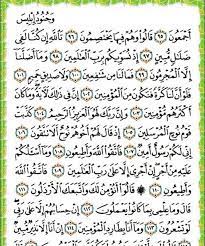 وَجُنُودُ إِبْلِيسَ
أَجْمَعُونَ ٩٥ قَالُوا۟ وَهُمْ فِيهَا يَخْتَصِمُونَ ٩٦ تَٱللَّهِ إِن كُنَّا لَفِى
ضَلَٰلٍ مُّبِينٍ ٩٧ إِذْ نُسَوِّيكُم بِرَبِّ ٱلْعَٰلَمِينَ ٩٨ وَمَآ أَضَلَّنَآ
إِلَّا ٱلْمُجْرِمُونَ ٩٩ فَمَا لَنَا مِن شَٰفِعِينَ ١٠٠ وَلَا صَدِيقٍ حَمِيمٍ ١٠١
فَلَوْ أَنَّ لَنَا كَرَّةً فَنَكُونَ مِنَ ٱلْمُؤْمِنِينَ ١٠٢ إِنَّ فِى ذَٰلِكَ لَءَايَةً وَمَا كَانَ
أَكْثَرُهُم مُّؤْمِنِينَ ١٠٣ وَإِنَّ رَبَّكَ لَهُوَ ٱلْعَزِيزُ ٱلرَّحِيمُ ١٠٤ كَذَّبَتْ
قَوْمُ نُوحٍ ٱلْمُرْسَلِينَ ١٠٥ إِذْ قَالَ لَهُمْ أَخُوهُمْ نُوحٌ أَلَا تَتَّقُونَ ١٠٦
إِنِّى لَكُمْ رَسُولٌ أَمِينٌ ١٠٧ فَٱتَّقُوا۟ ٱللَّهَ وَأَطِيعُونِ ١٠٨ وَمَآ أَسْـَٔلُكُمْ
عَلَيْهِ مِنْ أَجْرٍ إِنْ أَجْرِىَ إِلَّا عَلَىٰ رَبِّ ٱلْعَٰلَمِينَ ١٠٩ فَٱتَّقُوا۟ ٱللَّهَ
وَأَطِيعُونِ ١١٠ ۞ قَالُوٓا۟ أَنُؤْمِنُ لَكَ وَٱتَّبَعَكَ ٱلْأَرْذَلُونَ ١١١
قَالَ وَمَا عِلْمِى بِمَا كَانُوا۟ يَعْمَلُونَ ١١٢ إِنْ حِسَابُهُمْ إِلَّا عَلَىٰ رَبِّى
لَوْ تَشْعُرُونَ ١١٣ وَمَآ أَنَا۠ بِطَارِدِ ٱلْمُؤْمِنِينَ ١١٤ إِنْ أَنَا۠ إِلَّا نَذِيرٌ